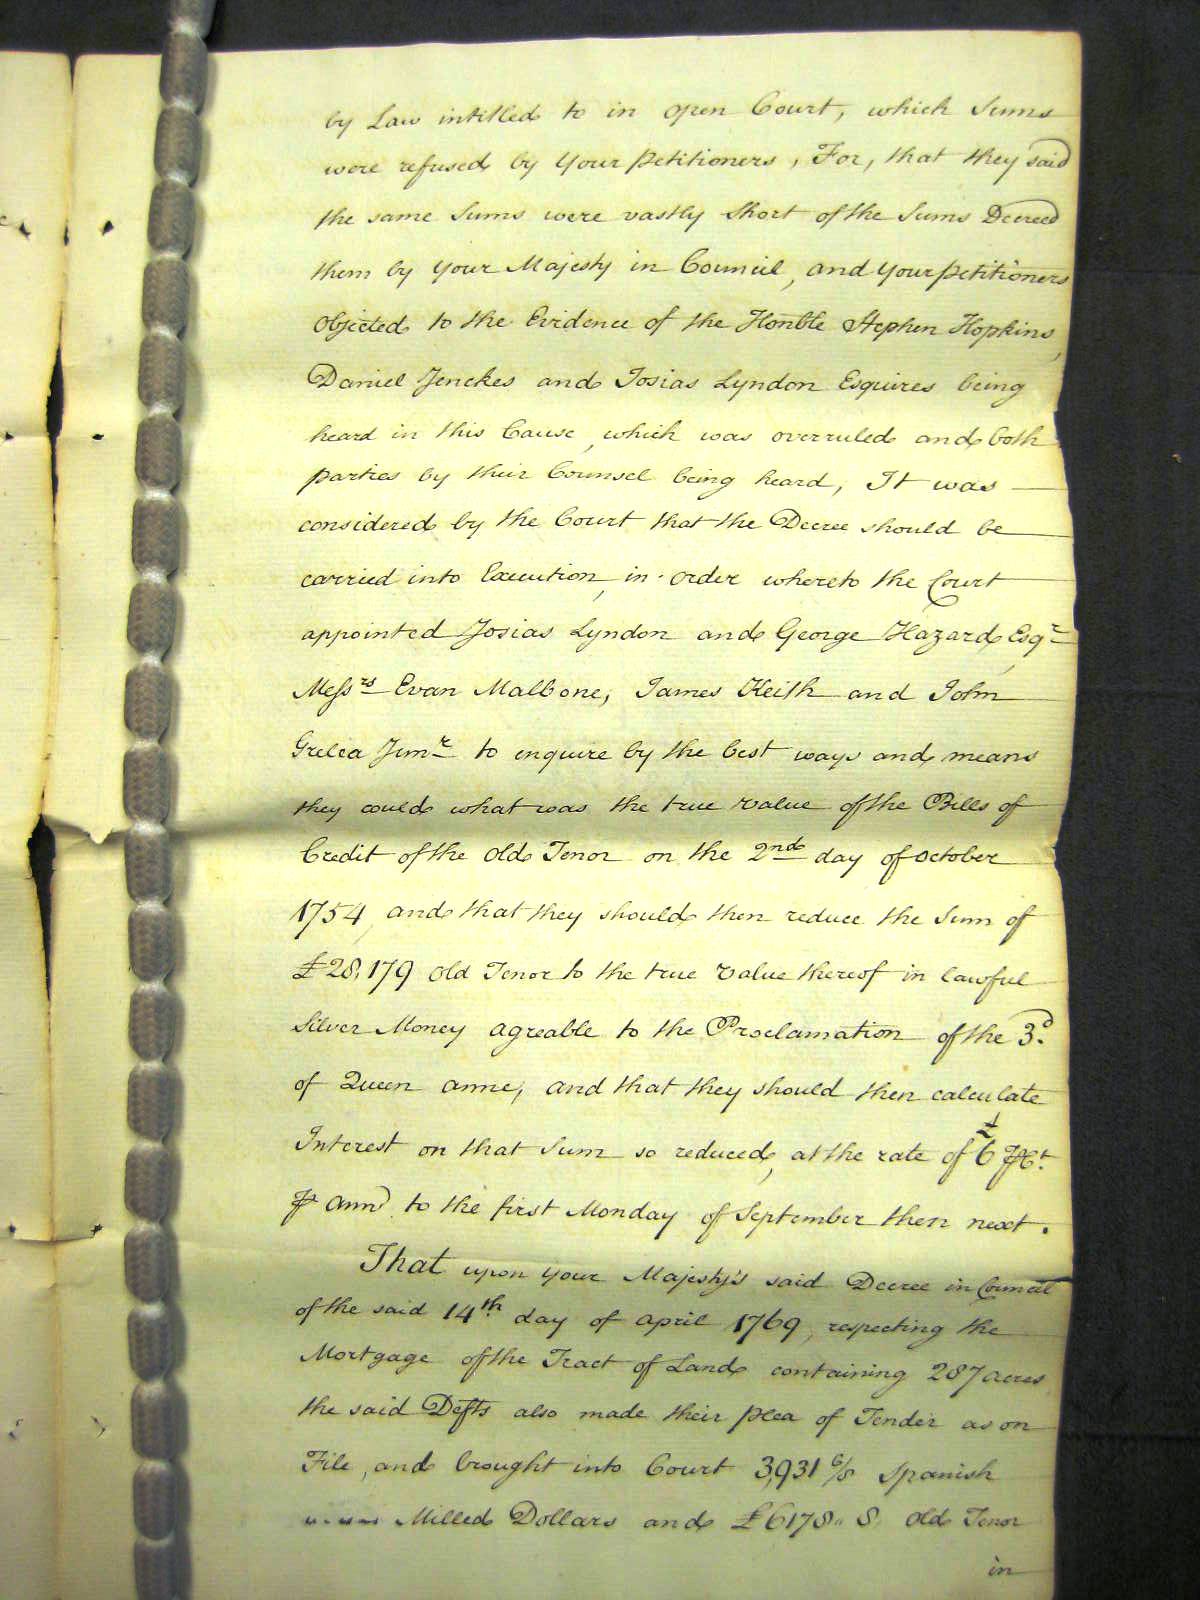 by Law intitled to in open Court, which Sums
were refused by Your Petitioners, For, that they said
the same Sums were vastly short of the Sums Decreed
them by your Majesty in Council, and your petitioners
Objected to the Evidence of the Honble Stephen Hopkins,
Daniel Jenckes and Josias Lyndon Esquires being
heard in this Cause, which was overruled and both
parties by their Counsel being heard, It was
considered by the Court that the Decree should be
carried into Execution, in order whereto the Court
appointed Josias Lyndon and George Hazard, Esqr
Messrs Evan Malbone, James Keith and John
Grelea Junr to enquire by the best ways and means
they could what was the true value of the Bills of
Credit of the Old Tenor on the 2nd day of October
1754, and that they should then reduce the Sum of
£28,179 Old Tenor to the true value thereof in lawful
Silver Money agreable to the Proclamation of the 3d.
of Queen Anne, and that they should then calculate
Interest on that Sum so reduced, at the rate of £6 ⅌ Ct.
⅌ Ann to the first Monday of September then next.
That upon your Majesty's said Decree in Council
of the said 14th day of April 1769, respecting the
Mortgage of the Tract of Land containing 287 acres
the said Defts also made their plea of Tender as on
File, and brought into Court 3,931 6/8 Spanish
Milled Dollars and £6178,, 8 Old Tenor
in